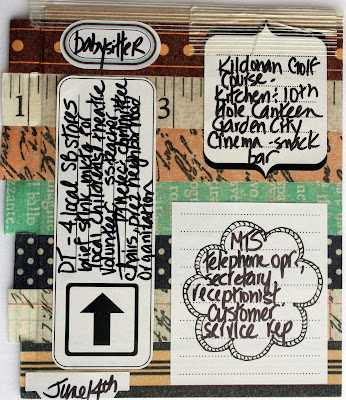 babysitter
Kildonan Golf
Course -
Kitchen: 10th
Hole Canteen
Garden City
Cinema - snack
bar
1
3
- 4 local SB stores
brief stint acting for
local children's theatre
volunteer: ss teacher
committee
chairs, neighborhood
organization
MTS
telephone opr.,
secretary
receptionist
customer
service rep
June 14th